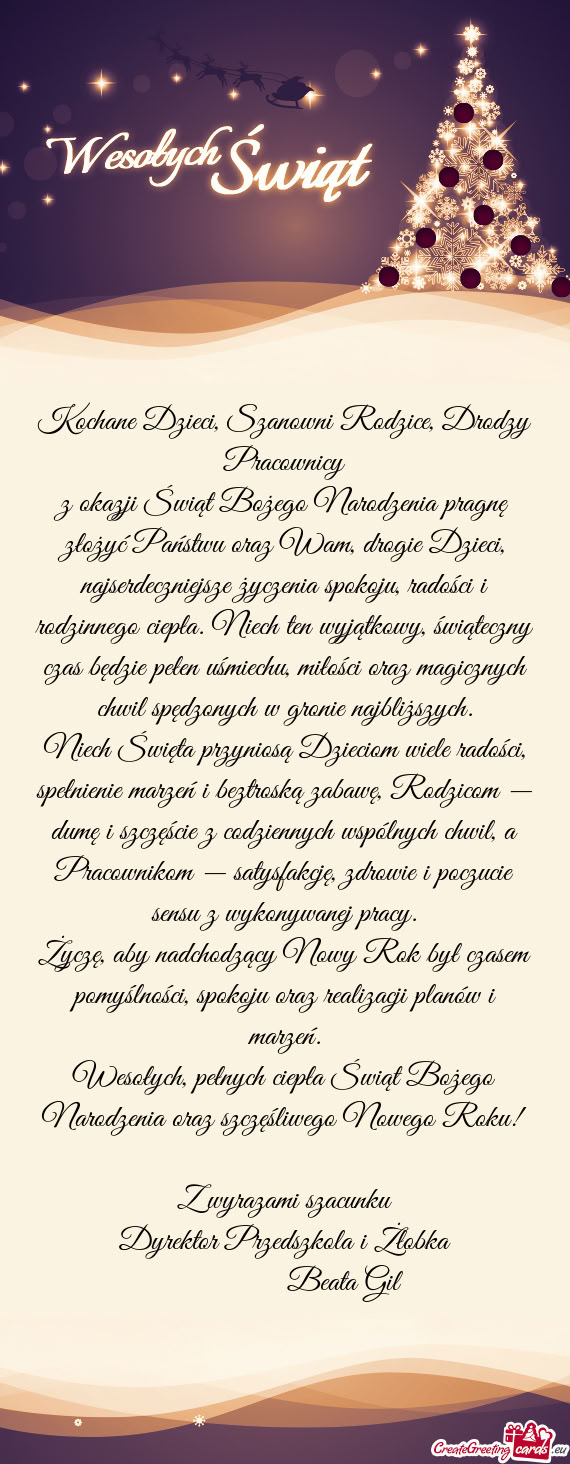 Wesołych Świąt
Kochane Dzieci, Szanowni Rodzice, Drodzy
Pracownicy
z okazji Świąt Bożego Narodzenia pragnę
złożyć Państwu oraz Wam, drogie Dzieci,
najserdeczniejsze życzenia spokoju, radości i
rodzinnego ciepła. Niech ten wyjątkowy, świąteczny
czas będzie pełen uśmiechu, miłości oraz magicznych
chwil spędzonych w gronie najbliższych.
Niech Święta przyniosą Dzieciom wiele radości,
spełnienie marzeń i beztroską zabawę, Rodzicom —
dumę i szczęście z codziennych wspólnych chwil, a
Pracownikom — satysfakcję, zdrowie i poczucie
sensu z wykonywanej pracy.
Życzę, aby nadchodzący Nowy Rok był czasem
pomyślności, spokoju oraz realizacji planów i
marzeń.
Wesołych, pełnych ciepła Świąt Bożego
Narodzenia oraz szczęśliwego Nowego Roku!
Z wyrazami szacunku
Dyrektor Przedszkola i Żłobka
Beata Gil
CreateGreetingcards.eu